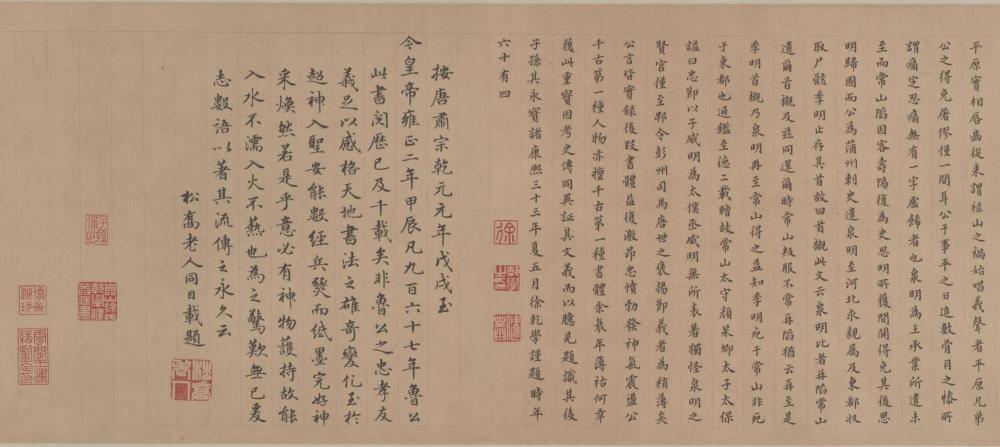 平原實相唇齒從来謂禄山之禍始唱義聲者平原兄弟
公之得免屠僇僅一間耳公于事平之日追敘骨月之慘所
謂痛定思痛無有一字虚飾者也泉明為王承業所遣未
至而常山陷因客壽陽復為史思明所獲間關得免其後思
明歸國而公為蒲州刺史遣泉明至河北求親属及東都收
取尸骸季明止存其首故曰首櫬此文云泉明比者再陷常山
遺爾首櫬及兹同還爾時常山叛服不常再陷猶云再至是
季明首櫬乃泉明再至常山得之益知季明死于常山非死
于東都也通鑑至德二載贈故常山太守顔杲卿太子太保
諡曰忠節以子威明為太僕丞威明無所表著獨怪泉明之
賢官僅至郫令彭州司馬唐世之褒揚節義者為稍薄矣
公言皆實録後段書體益復激昂忠憤勃發神氣震盪公
千古第一種人物亦擅千古第一種書體余衰年薄祜何幸
獲此重寶因考史傳同異証其文義而以臆見題識其後
子孫其永寶諸康熙三十三年夏五月徐乾學謹題時年
六十有四
徐
按唐肅宗乾元元年戊戌至
今皇帝雍正二年甲辰凡九百六十七年魯公
此書閲歷已及千載矣非魯公之忠孝友
義足以感格天地書法之雄奇變化至於
超神入聖安能數經兵燹而纸墨完好神
采煥然若是乎意必有神物護持故能
入水不濡入火不熱也為之驚歎無已爰
志數語以著其流傳之永久云
松喬老人同日載題